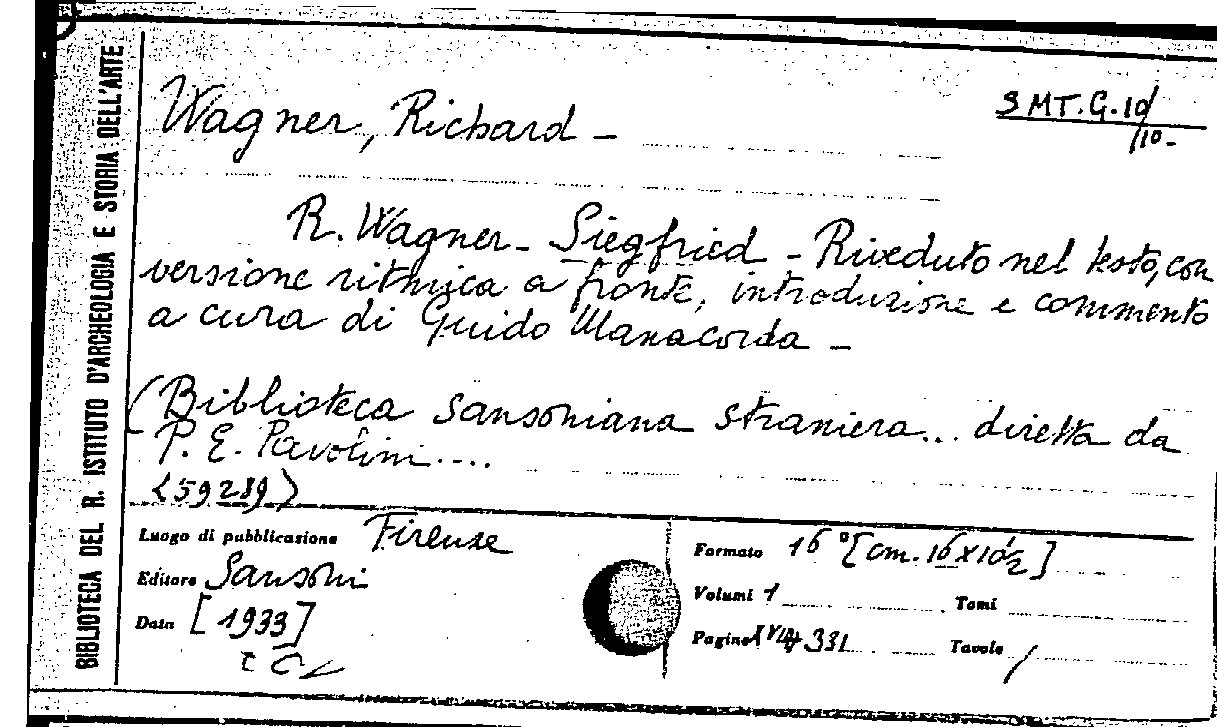 BIBLIOTECA DEL R. ISTITUTO D'ARCHEOLOGIA E STORIA DELL'ARTE
Wagner, Richard -
3 MT. G. 10/
/10-
R. Wagner - Siegfried - Riveduto nel testo, con
versione ritmica a fronte, introduzione e commento
a cura di Guido Manacorda -
(Biblioteca sansoniana straniera... diretta da
P. E. Pavolini....
(59289)
Luogo di pubblicazione Firenze
Editore Sansoni
Data [1933]
Formato 16° [cm. 16x10½]
Volumi 1 Tomi
Pagine XVIII+331 Tavole /